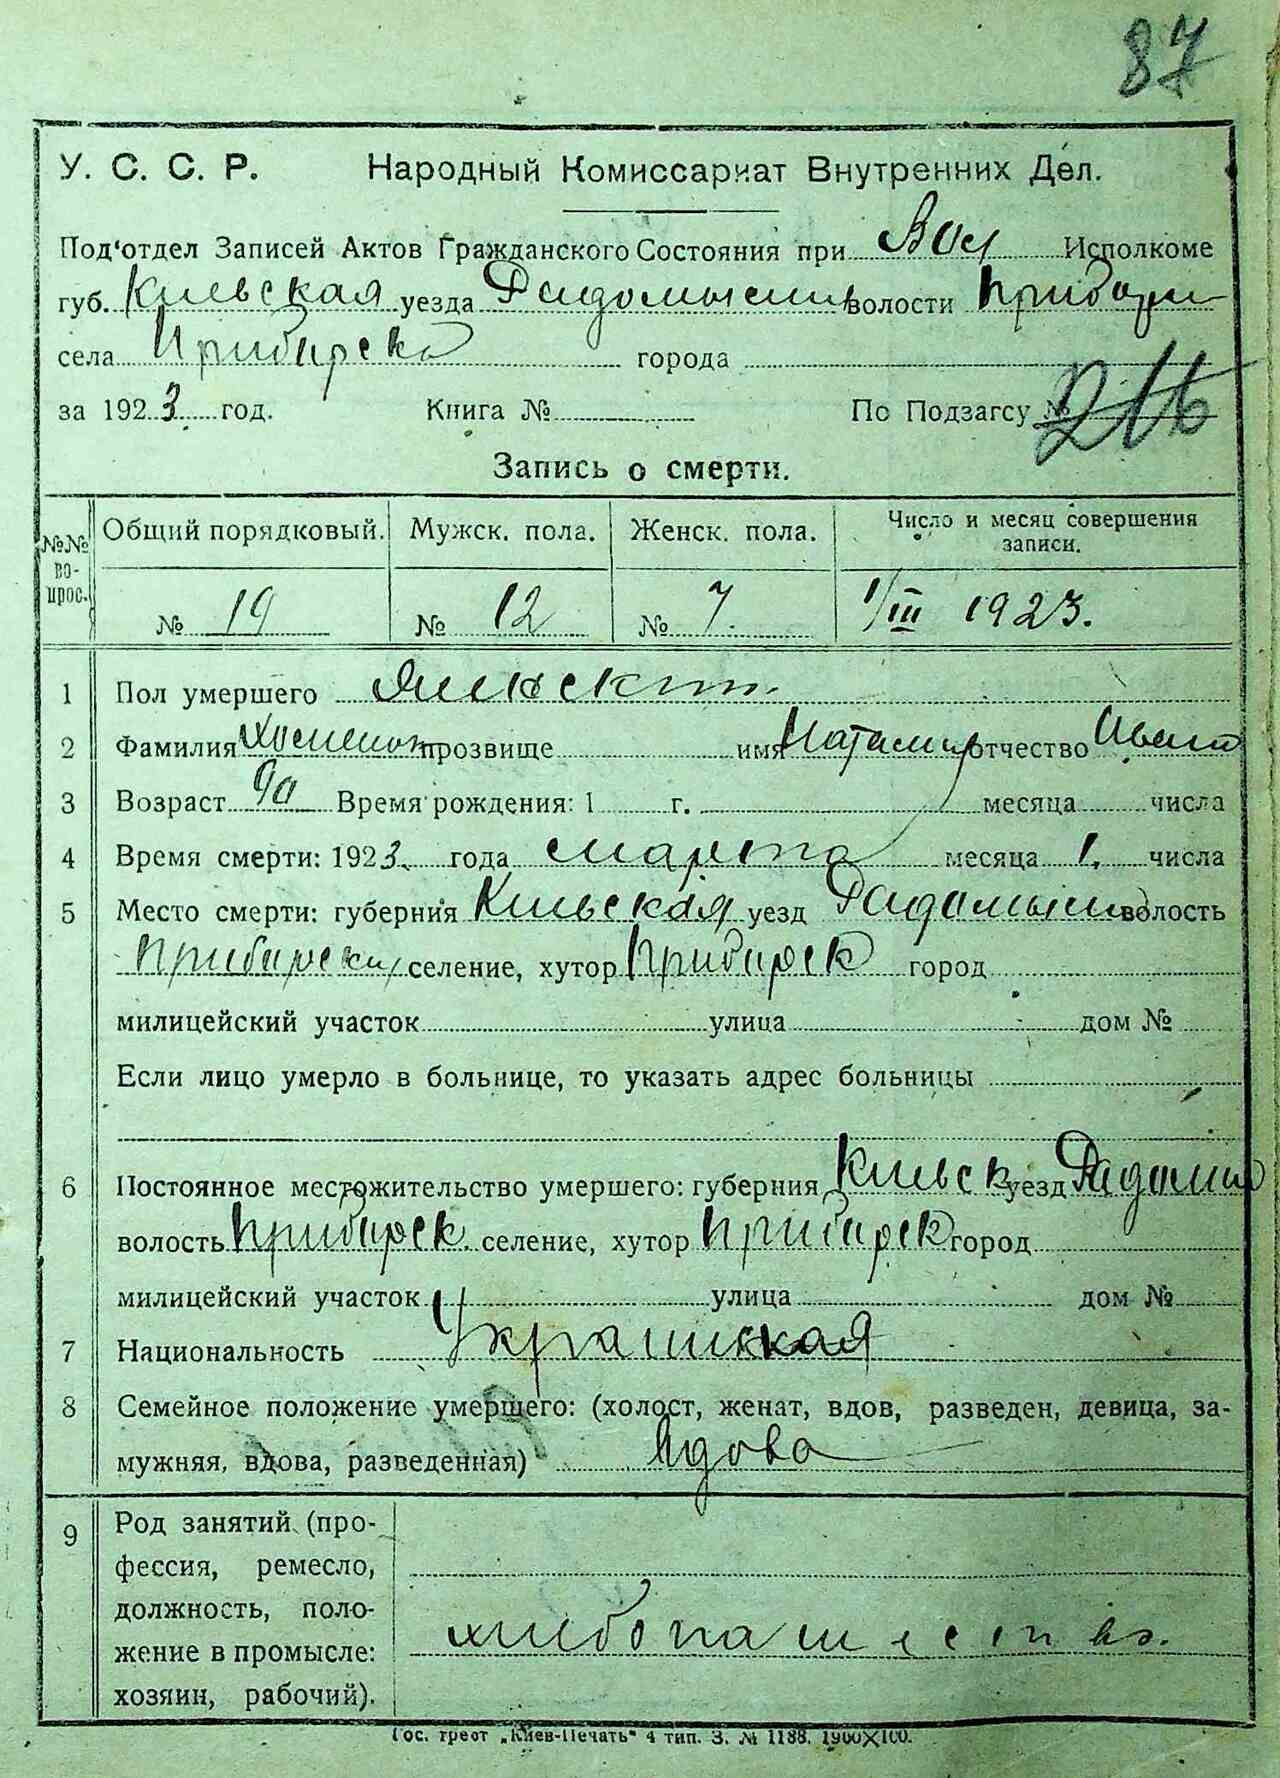 87
У. С. С. Р. Народный Комиссариат Внутренних Дел.
Под'отдел Записей Актов Гражданского Состояния при Вол Исполкоме
губ. Киевская уезда волости
села Прибирска города
за 1923 год. Книга № По Подзагсу №
Запись о смерти.
№№ вопрос. Общий порядковый. Мужск. пола. Женск. пола. Число и месяц совершения записи.
№ 19 № 12 № 7. 1/III 1923.
1 Пол умершего
2 Фамилия прозвище имя отчество
3 Возраст 90 Время рождения: 1 г. месяца числа
4 Время смерти: 1923 года марта месяца 1. числа
5 Место смерти: губерния Киевская уезд волость
селение, хутор Прибирск город
милицейский участок улица дом №
Если лицо умерло в больнице, то указать адрес больницы
6 Постоянное местожительство умершего: губерния Киевск уезд
волость Прибирск. селение, хутор Прибирск город
милицейский участок улица дом №
7 Национальность
8 Семейное положение умершего: (холост, женат, вдов, разведен, девица, за-
мужняя, вдова, разведенная) Вдова
9 Род занятий (про-
фессия, ремесло,
должность, поло-
жение в промысле:
хозяин, рабочий).
Гос. трест „Киев-Печать" 4 тип. З. № 1188. 1900X100.